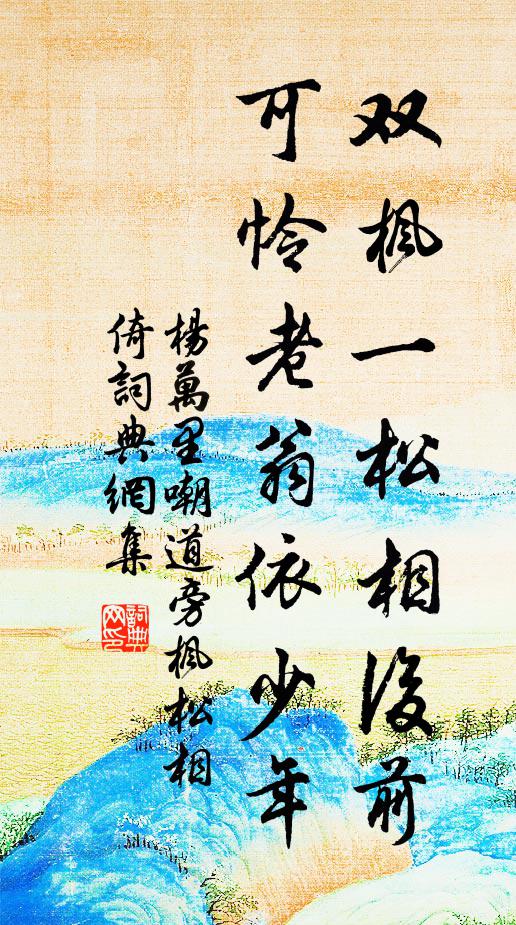 双楓一松相後前
可怜老翁依少年
楊萬里嘲道旁楓松相
倚詞典網集
詞典